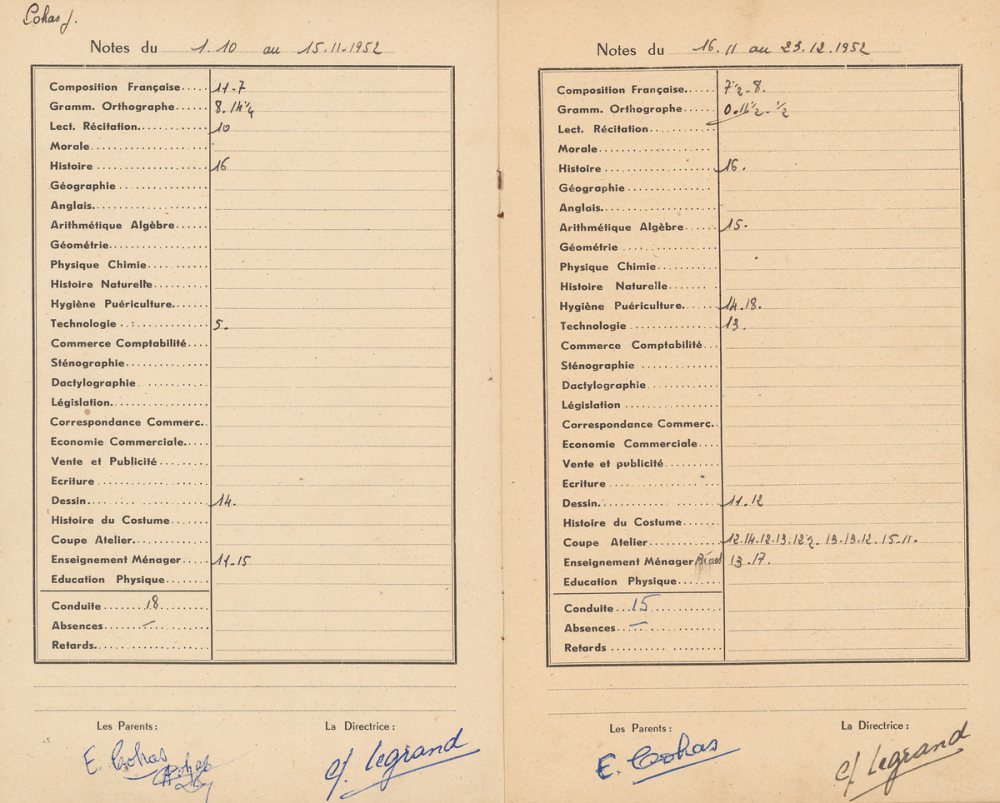 Cohas J.
Notes du 1.10 au 15.11.1952
Composition Française..... 11-7
Gramm. Orthographe..... 8. 14¼
Lect. Récitation.......... 10
Morale..........
Histoire.......... 16
Géographie..........
Anglais..........
Arithmétique Algèbre.....
Géométrie..........
Physique Chimie..........
Histoire Naturelle..........
Hygiène Puériculture.....
Technologie.......... 5.
Commerce Comptabilité....
Sténographie..........
Dactylographie..........
Législation..........
Correspondance Commerc..
Economie Commerciale.....
Vente et Publicité..........
Ecriture..........
Dessin.......... 14.
Histoire du Costume......
Coupe Atelier..........
Enseignement Ménager.... 11-15
Education Physique.......
Conduite........ 18
Absences........ –
Retards..........
Les Parents : La Directrice :
E. Cohas
J. Legrand
Notes du 16.11 au 23.12.1952
Composition Française..... 7½-8.
Gramm. Orthographe.....
Lect. Récitation..........
Morale..........
Histoire.......... 16.
Géographie..........
Anglais..........
Arithmétique Algèbre..... 15.
Géométrie..........
Physique Chimie..........
Histoire Naturelle..........
Hygiène Puériculture..... 14.18.
Technologie.......... 13.
Commerce Comptabilité...
Sténographie..........
Dactylographie..........
Législation..........
Correspondance Commerc.
Economie Commerciale....
Vente et publicité..........
Ecriture..........
Dessin.......... 11.12
Histoire du Costume......
Coupe Atelier.......... 12.14.12.13.12½. 13.13.12.15.11.
Enseignement Ménager 13.17.
Education Physique.......
Conduite..... 15
Absences..... –
Retards..........
Les Parents : La Directrice :
E. Cohas
J. Legrand